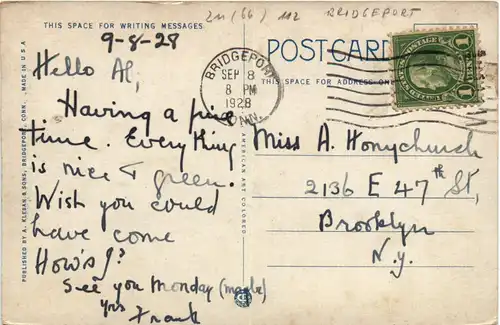 2n (66) 112 BRIDGEPORT
THIS SPACE FOR WRITING MESSAGES
9-8-28
Hello Al,
Having a fine
time. Everything
is nice & green.
Wish you could
have come
How's J?
See you Monday (maybe)
Yrs
Frank
PUBLISHED BY A. KLEBAN & SONS, BRIDGEPORT, CONN.
MADE IN U S A
AMERICAN ART COLORED
POSTCARD
THIS SPACE FOR ADDRESS ONLY
BRIDGEPORT
SEP 8
8 PM
1928
CONN.
U.S. POSTAGE
1 1
Miss A. Honychurch
2136 E 47th St,
Brooklyn
N.Y.